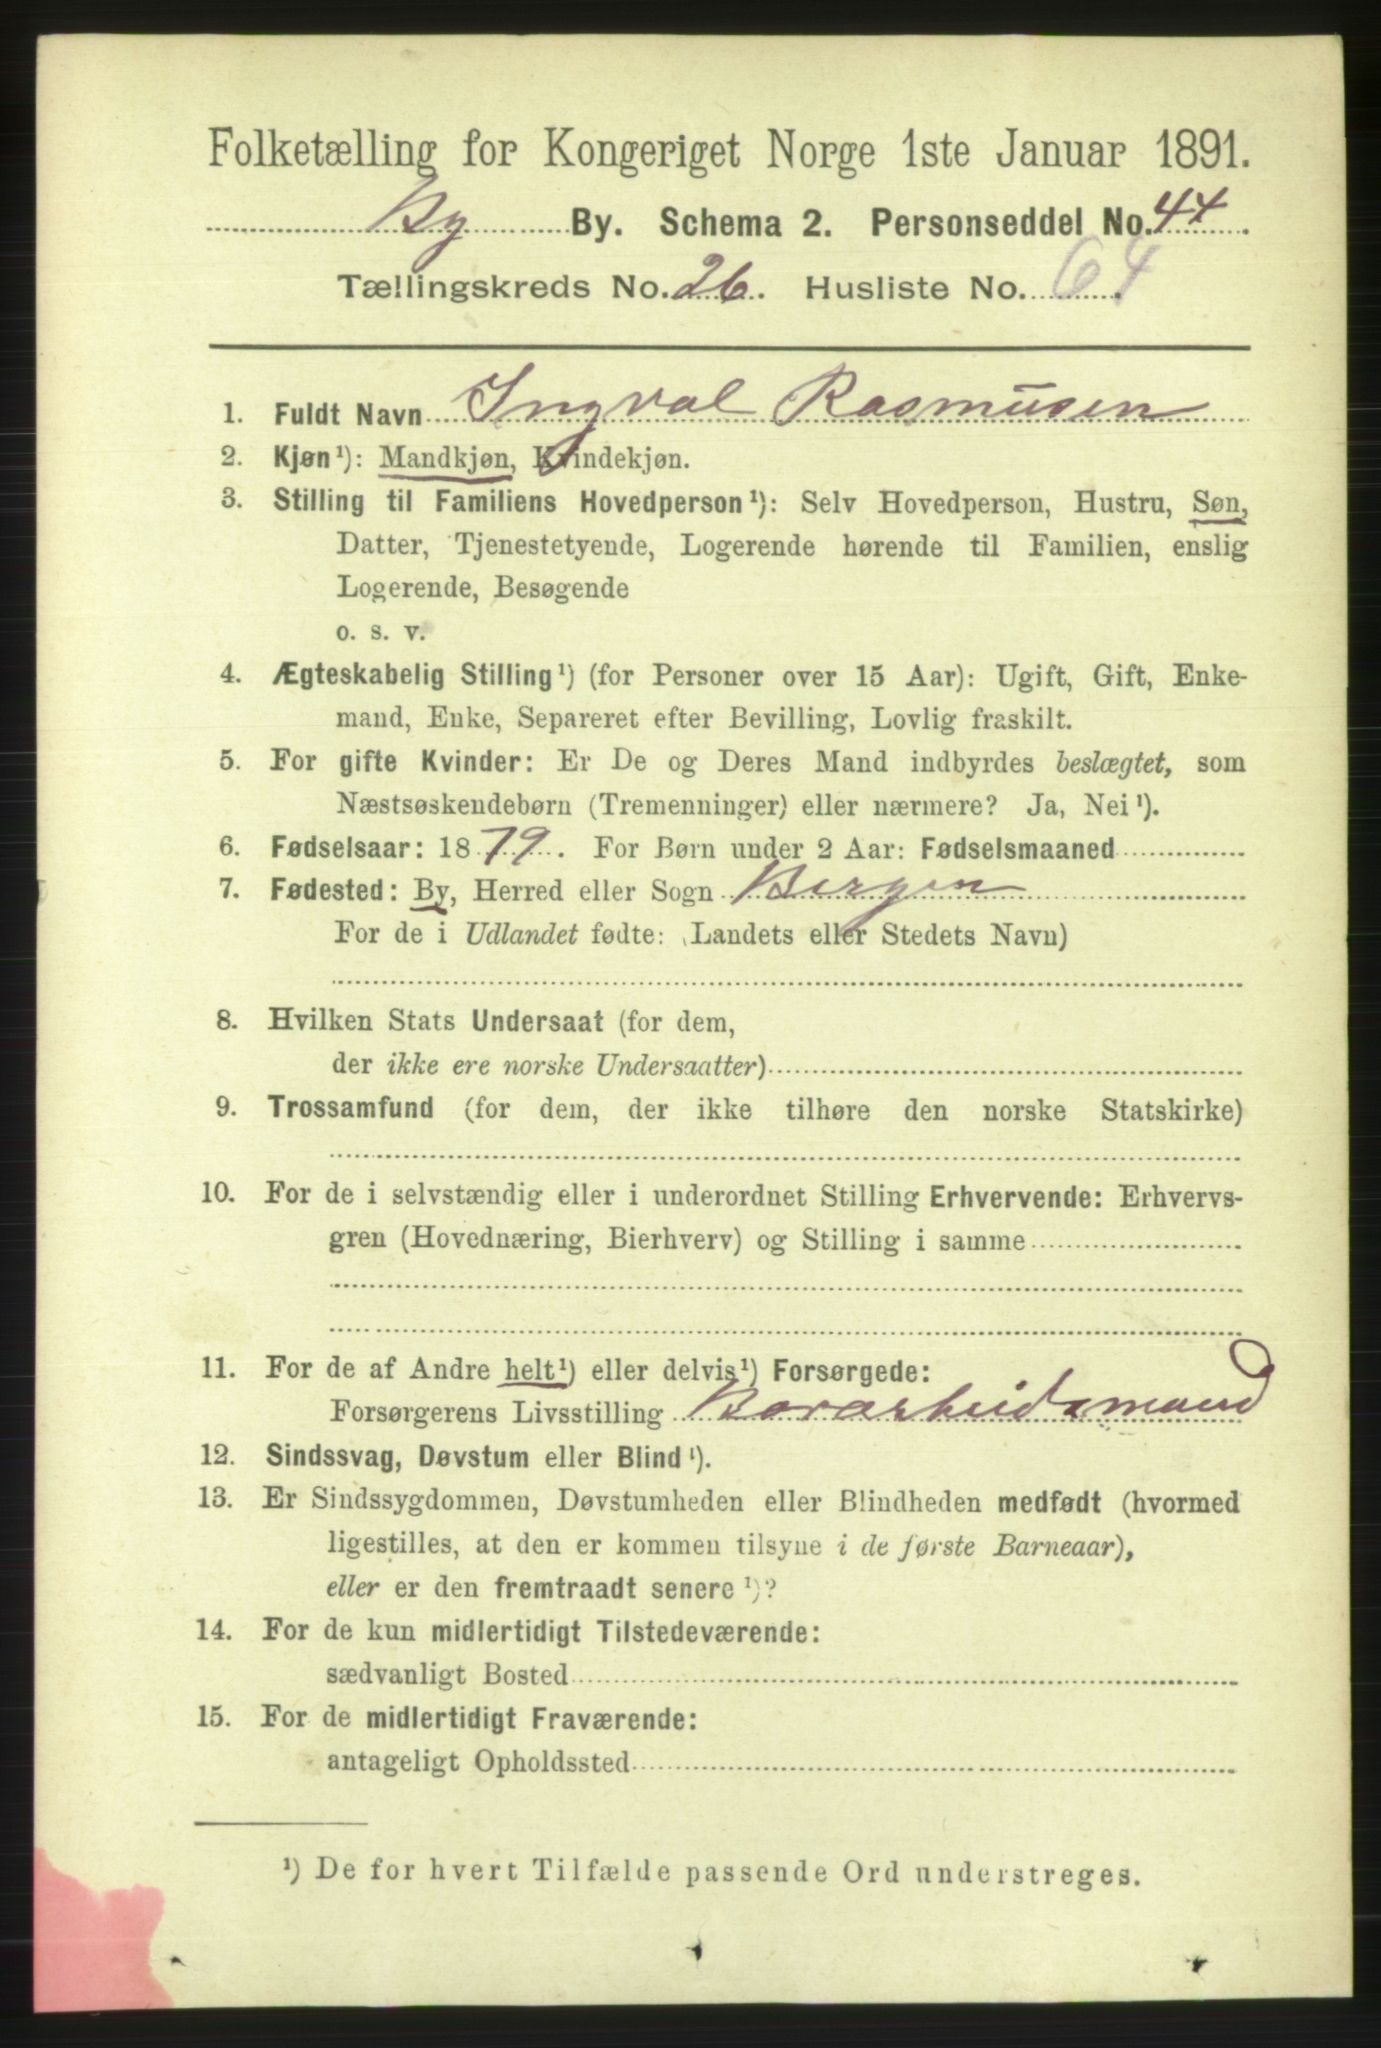 Folketælling for Kongeriget Norge 1ste Januar 1891.
By By. Schema 2. Personseddel No. 44.
Tællingskreds No. 26. Husliste No. 64.
1. Fuldt Navn Ingval Rasmusen
2. Kjøn¹): Mandkjøn, Kvindekjøn.
3. Stilling til Familiens Hovedperson¹): Selv Hovedperson, Hustru, Søn,
Datter, Tjenestetyende, Logerende hørende til Familien, enslig
Logerende, Besøgende
o. s. v.
4. Ægteskabelig Stilling¹) (for Personer over 15 Aar): Ugift, Gift, Enke-
mand, Enke, Separeret efter Bevilling, Lovlig fraskilt.
5. For gifte Kvinder: Er De og Deres Mand indbyrdes beslægtet, som
Næstsøskendebørn (Tremenninger) eller nærmere? Ja, Nei¹).
6. Fødselsaar: 1879. For Børn under 2 Aar: Fødselsmaaned
7. Fødested: By, Herred eller Sogn Bergen
For de i Udlandet fødte: (Landets eller Stedets Navn)
8. Hvilken Stats Undersaat (for dem,
der ikke ere norske Undersaatter)
9. Trossamfund (for dem, der ikke tilhøre den norske Statskirke)
10. For de i selvstændig eller i underordnet Stilling Erhvervende: Erhvervs-
gren (Hovednæring, Bierhverv) og Stilling i samme
11. For de af Andre helt¹) eller delvis¹) Forsørgede:
Forsørgerens Livsstilling
12. Sindssvag, Døvstum eller Blind¹).
13. Er Sindssygdommen, Døvstumheden eller Blindheden medfødt (hvormed
ligestilles, at den er kommen tilsyne i de første Barneaar),
eller er den fremtraadt senere¹)?
14. For de kun midlertidigt Tilstedeværende:
sædvanligt Bosted
15. For de midlertidigt Fraværende:
antageligt Opholdssted
¹) De for hvert Tilfælde passende Ord understreges.